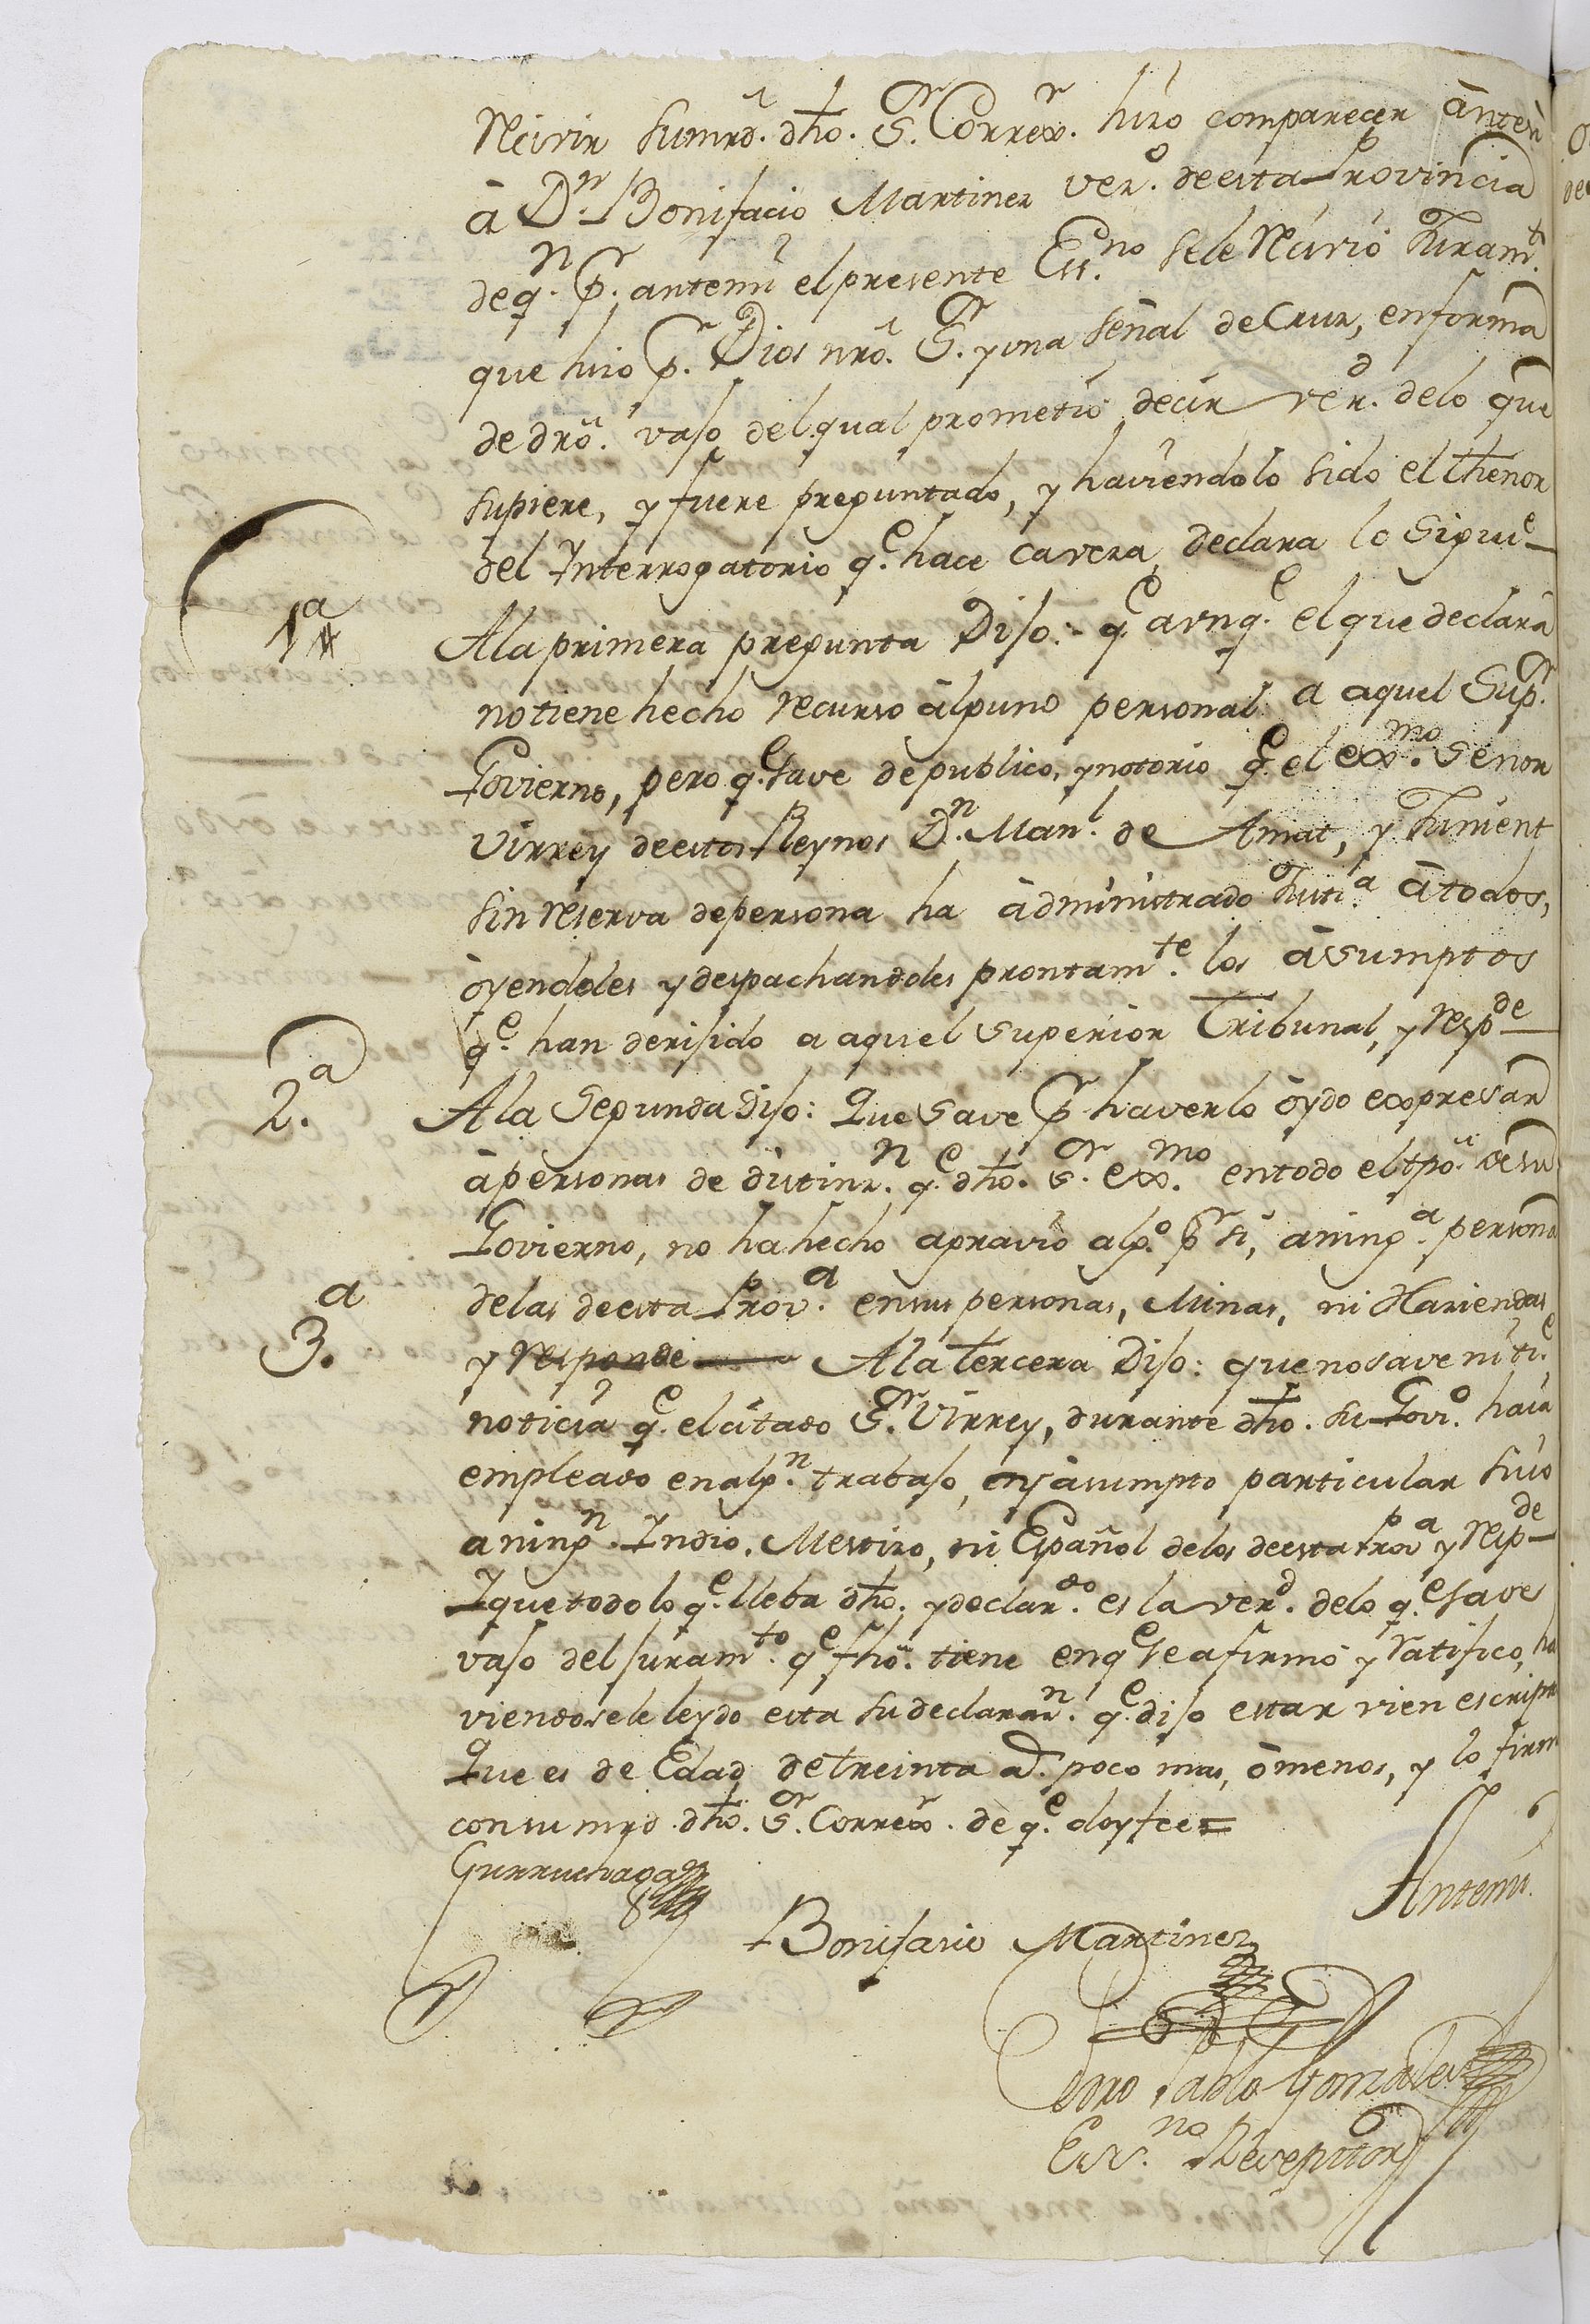 Recivir sumrd. dho. Sr. Correxr. hizo comparecer ante si
à Dn. Bonifacio Martinez vezo. de esta Provincia
de qn. pr. antemi el presente Essno. sele Recivió Juramto.
que hizo pr. Dios nrô. Sr. y una señal de Cruz, en forma
de drô. vajo del qual prometió decir verd. delo que
supiere, y fuere preguntado, y haviendolo sido el thenor
del Interrogatorio qe. hace caveza, declara lo siguie
1a Ala primera pregunta Dijo: qe. aunqe. el que declara
no tiene hecho recurso àlguno personal a aquel Supr.
Govierno, pero qe. save de publico, y notorio qe. el exmo. Señor
Virrey de estos Reynos Dn. Manl. de Amat, y Junient
sin reserva de persona ha àdministrado Justia. à todos,
òyendoles y despachandoles prontamte. los àsumptos
qe. han dirijido a aquel superior Tribunal, y respde
2.a Ala Segunda dijo: Que save pr haverlo òydo expresar
à personas de distinzn. qe. dho. Sr. exmo. en todo el tpo. de su
Govierno, no ha hecho agravio algo. pr si, a ninga. persona
delas de esta Prova. en sus personas, Minas, ni Haziendas
3.a y responde Ala tercera Dijo: que no save ni tie.
noticia qe. el citado Sr. Virrey, durante dho. su Govo. haia
empleado en algn. trabajo, en àsumpto particular suio
a ningn. Indio, Mestizo, ni Español delos de esta Prova y respde
Y que todo lo qe. lleba dho. y declardo. es la verd. delo qe. save
vajo del juramto. qe fho. tiene en qe se afirmó y ratificó, ha
viendosele leydo esta su declarazn. qe. dijo estar vien escripta
Que es de Edad de treinta as. poco mas, ò menos, y lo firmó
con su mrd. dho. Sr. Correxr. de qe. doy fee=
Gurruchaga
Antemi.
Bonifacio Martinez
Pedro Pablo Gonzalez
Essno. Rezeptor